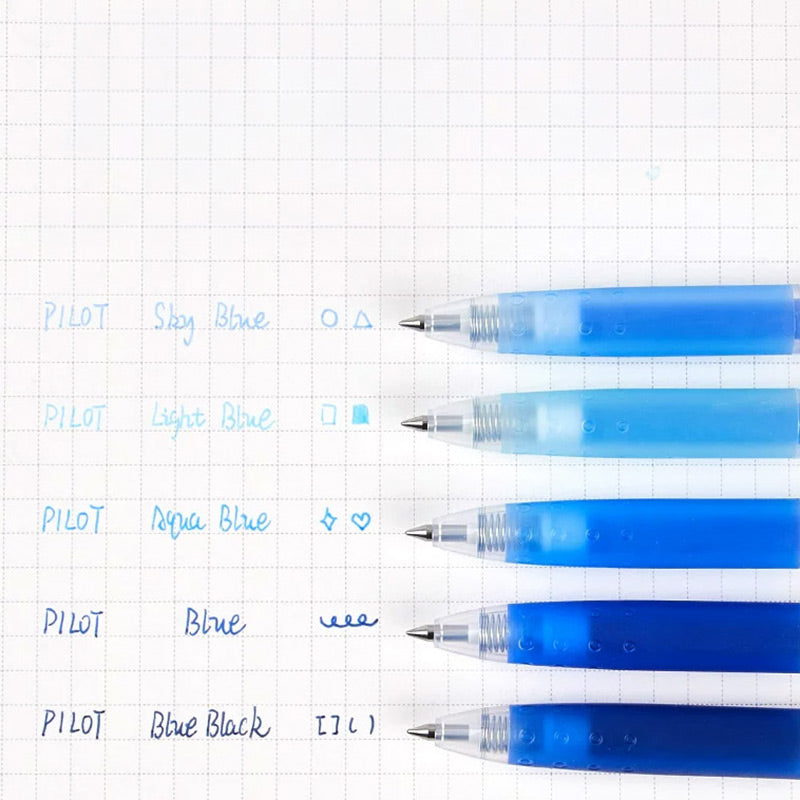 PILOT Sky Blue
PILOT Light Blue
PILOT Aqua Blue
PILOT Blue
PILOT Blue Black [] ( )